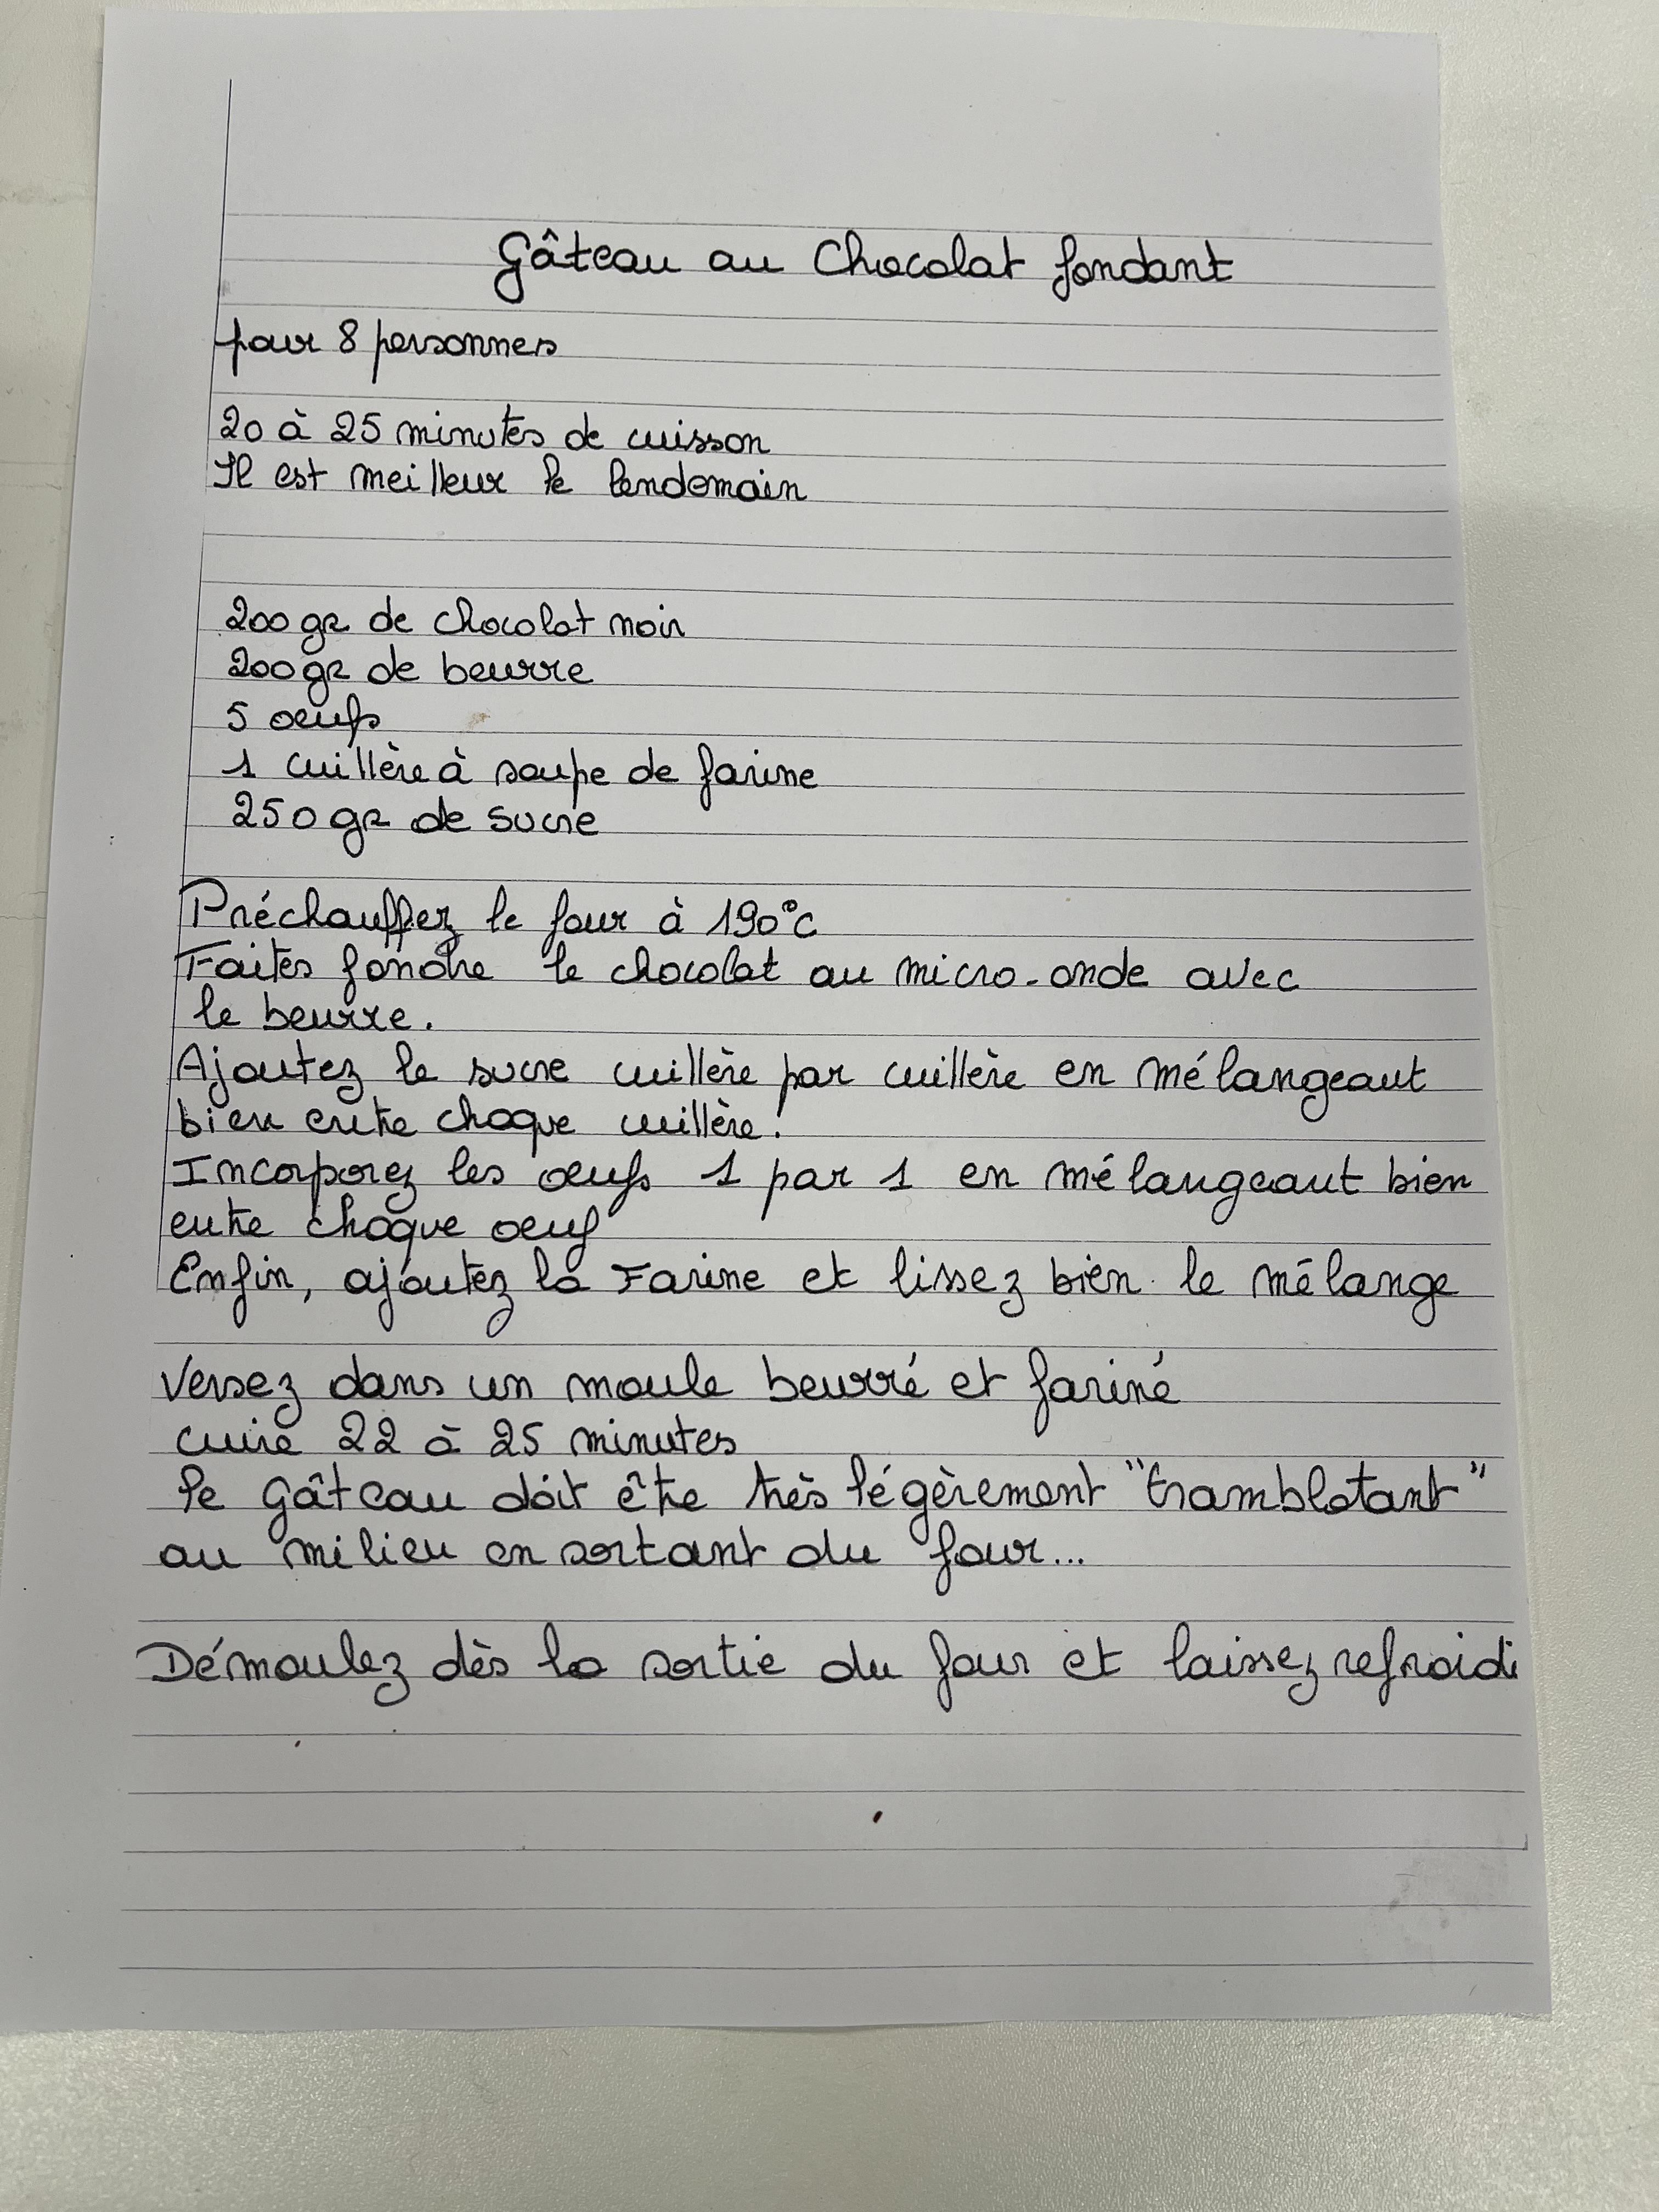 Gâteau au Chocolat fondant
pour 8 personnes
20 à 25 minutes de cuisson
Il est meilleur le lendemain
200 gr de chocolat noir
200 gr de beurre
5 oeufs
1 cuillère à soupe de farine
250 gr de sucre
Préchauffez le four à 190°C
Faites fondre le chocolat au micro-onde avec
le beurre.
Ajoutez le sucre cuillère par cuillère en mélangeant
bien entre chaque cuillère.
Incorporez les oeufs 1 par 1 en mélangeant bien
entre chaque oeuf
Enfin, ajoutez la Farine et lissez bien le mélange
Versez dans un moule beurré et fariné
cuire 22 à 25 minutes
le gâteau doit être très légèrement "tramblotant"
au milieu en sortant du four...
Démoulez dès la sortie du four et laissez refroidi